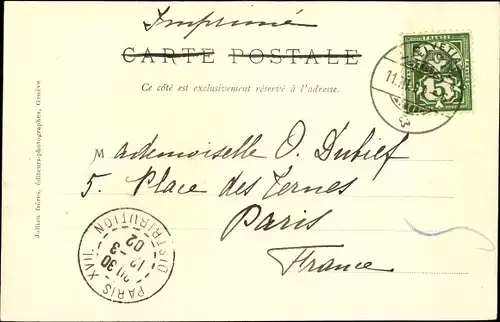 Imprimé
CARTE POSTALE
Ce côté est exclusivement réservé à l'adresse.
HELVETIA
FRANCO
5
Mademoiselle O. Dubief
5. Place des Ternes
Paris
France
PARIS XVII
DISTRIBUTION
20 30
12 - 3
02
Jullien frères, éditeurs-photographes, Genève